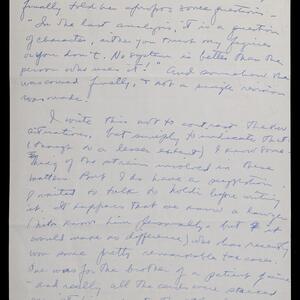 finally told her apropos some question –
"In the last analysis, it is a question
of character, either you trust my figures
or you don't. No system is better than the
person who uses it!" And somehow she
was convinced finally, & not a single revision
was made.
I write this not to contrast the two
situations, but simply to indicate that
(though to a lesser extent) I know some-
thing of the strain involved in these
matters. But I do have a suggestion.
I waited to talk to before writing
it. It happens that we know a lawyer
(Nita knows him personally, but it
would make no difference) who has recently
won some pretty remarkable tax cases.
One was for the brother of a patient of mine
- and really all the cards were stacked